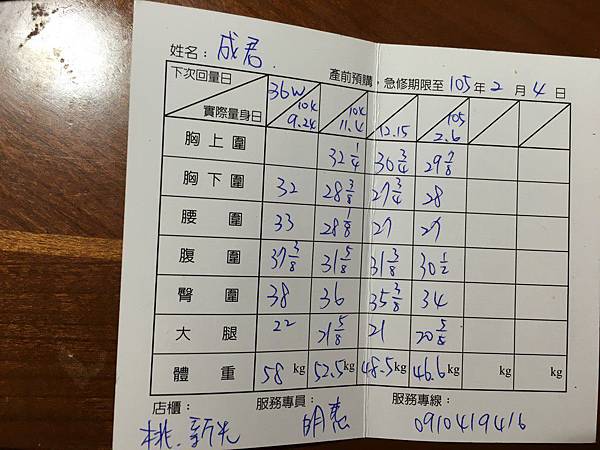 姓名：成君
產前預購，急修期限至105年2月4日
下次回量日 36W
實際量身日 104 9.24 104 11.4 12.15 105 2.6
胸上圍 32 1/4 30 3/4 29 7/8
胸下圍 32 28 3/8 27 3/4 28
腰圍 33 28 1/8 27 27
腹圍 37 3/8 31 5/8 31 3/8 30 1/2
臀圍 38 36 35 3/8 34
大腿 22 21 5/8 21 20 5/8
體重 58 kg 52.5 kg 48.5 kg 46.6 kg kg kg
店櫃： 服務專員： 服務專線：
桃.新光 明惠 0910419416